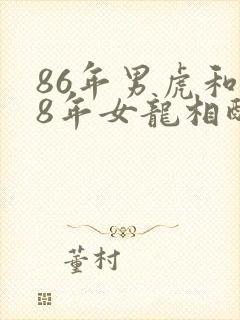 86年男虎和
8年女龍相
董村